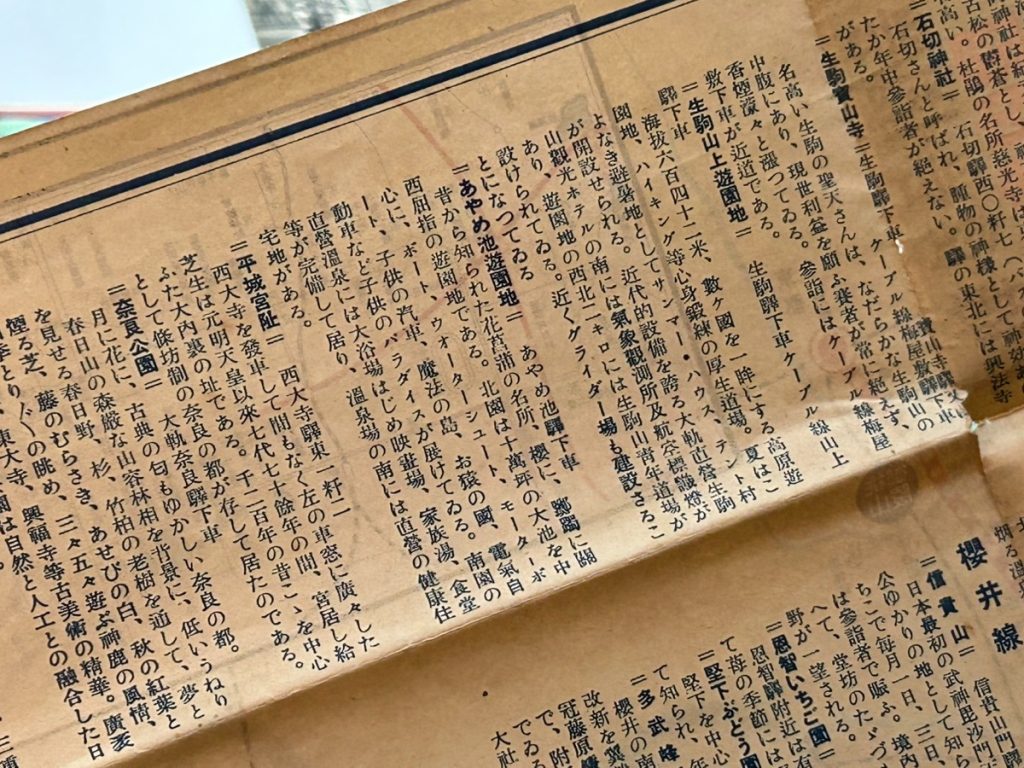 神社は
古松の鬱蒼とし、
名高い。杜鵑の名所慈光寺は
＝石切神社＝　石切驛西〇粁七（バ
石切さんと呼ばれ、腫物の神樣として
たか年中參詣者が絶えない。驛の東北には興法寺
がある。
＝生駒寶山寺＝生駒驛下車　ケーブル線梅屋敷驛下車
名高い生駒の聖天さんは、なだらかな生駒山の
中腹にあり、現世利益を願ふ賽者が常に絶えず、
香煙濛々と漲つてゐる。參詣にはケーブル線梅屋
敷下車が近道である。
＝生駒山上遊園地＝　生駒驛下車ケーブル線山上
驛下車
海拔六百四十二米、數ヶ國を一眸にする高原遊
園地、ハイキング等心身鍛練の厚生道場。夏はこ
よなき避暑地としてサンマー・ハウス、テント村
が開設せられる。近代的設備を誇る大軌直營生駒
山觀光ホテルの南には氣象觀測所及航空標識燈が
あり、遊園地の西北一キロには生駒山青年道場が
設けられてゐる。近くグライダー場も建設さるこ
とになつてゐる
＝あやめ池遊園地＝　あやめ池驛下車
昔から知られた花菖蒲の名所、櫻に、躑躅に關
西屈指の遊園地である。北園は十萬坪の大池を中
心に、ボート、ウォーターシュート、モーターボ
ート、子供の汽車、魔法の島、お猿の國、電氣自
動車など子供のパラダイスが展けてゐる。南園の
直營温泉には大浴場はじめ映畫場、家族湯、食堂
等が完備して居り、温泉場の南には直營の健康住
宅地がある。
＝平城宮趾＝　西大寺驛東一粁二
西大寺を發車して間もなく左の車窓に廣々した
芝生は元明天皇以來七代七十餘年の間、宮居し給
ふた大内裏の址である。千二百年の昔こゝを中心
として條坊制の奈良の都が存して居たのである。
＝奈良公園＝　大軌奈良驛下車
月に花に、古典の匂もゆかしい奈良の都。夢と
春日山の森嚴な山容林相を背景に、低いうねり
を見せる春日野、杉、竹柏の老樹を通して、
煙る芝、藤のむらさき、あせびの白、秋の紅葉と
季とりぐの眺め、三々五々遊ぶ神鹿の風情、
東大寺、興福寺等古美術の精華。廣袤
園は自然と人工との融合した日
櫻井線
＝信貴山＝　信貴山門驛
日本最初の武神毘沙門
公ゆかりの地として知ら
ちこで毎月一日、三日、
は參詣者で賑ふ。境内
へて、堂坊のたゝづ
野が一望される。
＝恩智いちご園＝
恩智驛附近は有
て苺の季節には
＝堅下ぶどう園
堅下を中心
て知られ、年
＝多武峰
櫻井の南
改新を翼
冠藤原鎌
で、附
でゐる
大社